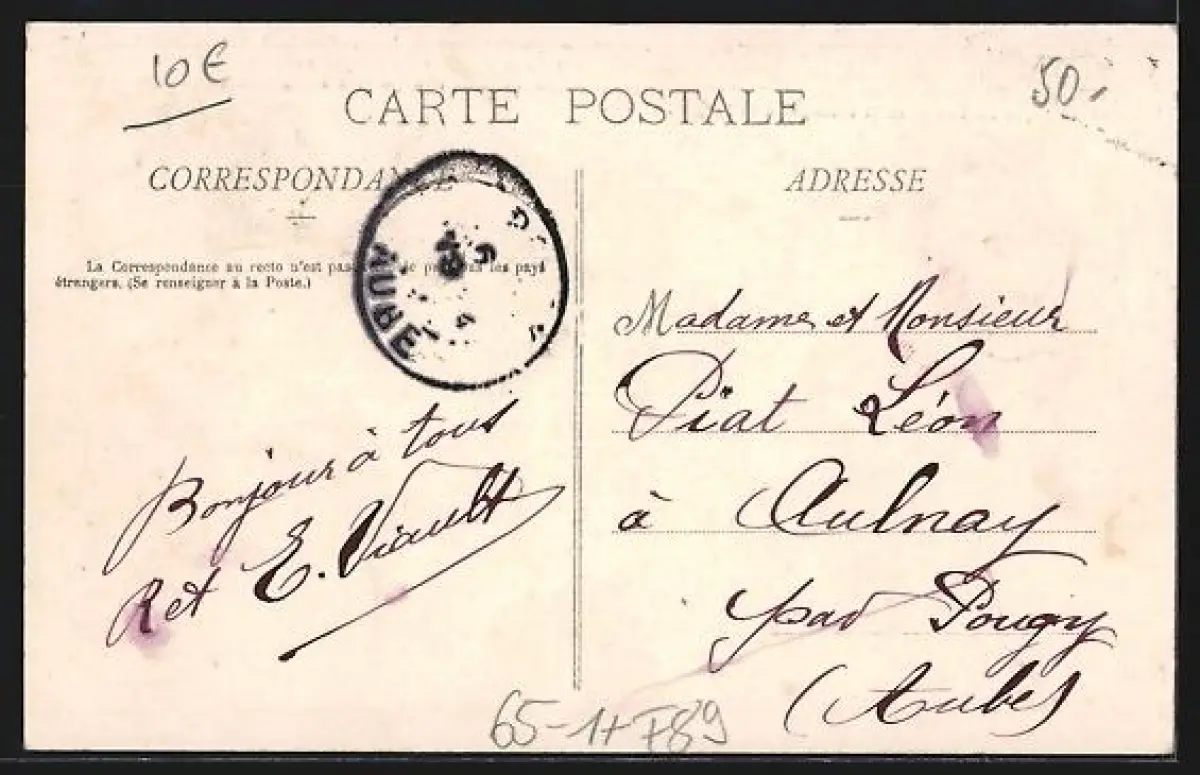 10€
50.
CARTE POSTALE
CORRESPONDANCE
ADRESSE
La Correspondance au recto n'est pas les pays
étrangers. (Se renseigner à la Poste.)
AUBE
Bonjour à tous
R et E. Viault
Madame et Monsieur
Piat Léon
à Aulnay
par Pougy
(Aube)
65-1+F89